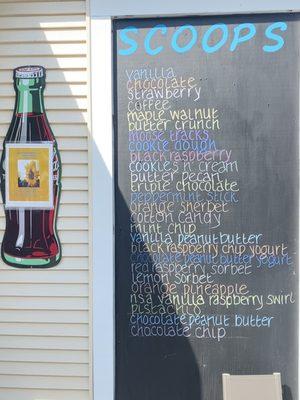 SCOOPS
vanilla
chocolate
strawberry
coffee
maple walnut
butter crunch
moose tracks
cookie dough
black raspberry
cookies n cream
butter pecan
triple chocolate
peppermint stick
orange sherbet
cotton candy
mint chip
vanilla peanut butter
black raspberry chip yogurt
chocolate peanut butter yogurt
red raspberry sorbet
lemon sorbet
orange pineapple
nsa vanilla raspberry swirl
pistachio
chocolate peanut butter
chocolate chip